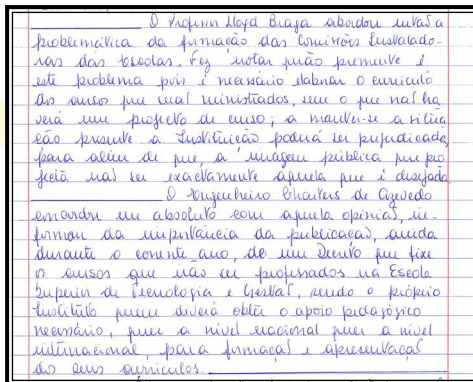 O Professor Lloyd Braga abordou então a
problemática da formação das Comissões Instalado-
ras das Escolas. Fez notar quão premente é
este problema pois é necessário elaborar o currículo
dos cursos que vão ministrados, sem o que não ha
verá um projecto de curso; a manter-se a situa
ção presente a Instituição poderá ser prejudicada,
para além de que, a imagem pública que pro
jecta não ser exactamente aquela que é desejada
O Engenheiro Charters de Azevedo
concordou em absoluto com aquela opinião, in-
formou da importância da publicação, ainda
durante o corrente ano, de um Decreto que fixe
os cursos que vão ser professados na Escola
Superior de Tecnologia e Gestão, sendo o próprio
Instituto quem deverá obter o apoio pedagógico
necessário, quer a nível nacional quer a nível
internacional, para formação e apresentação
dos seus currículos.